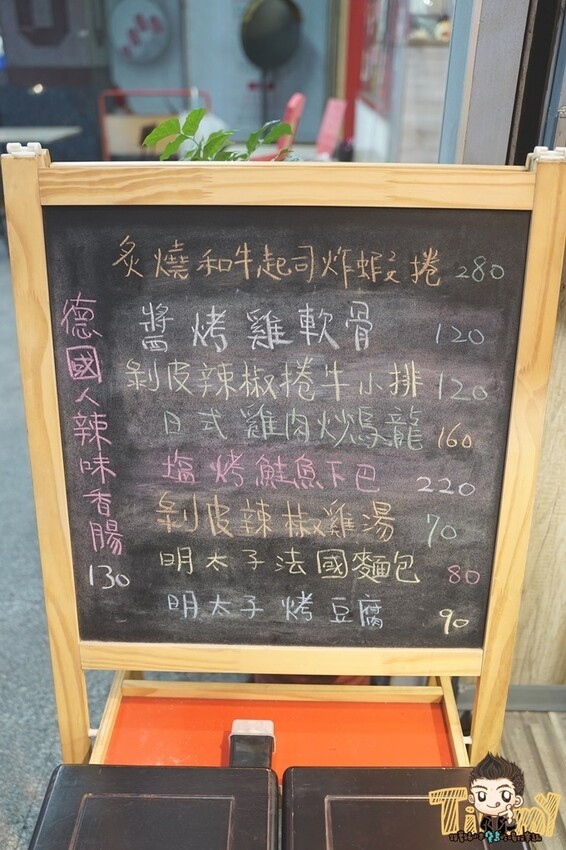 炙燒和牛起司炸蝦捲 280
醬烤雞軟骨 120
剝皮辣椒捲牛小排 120
日式雞肉炒烏龍 160
塩烤鮭魚下巴 220
剝皮辣椒雞湯 70
明太子法國麵包 80
明太子烤豆腐 90
德國人辣味香腸 130